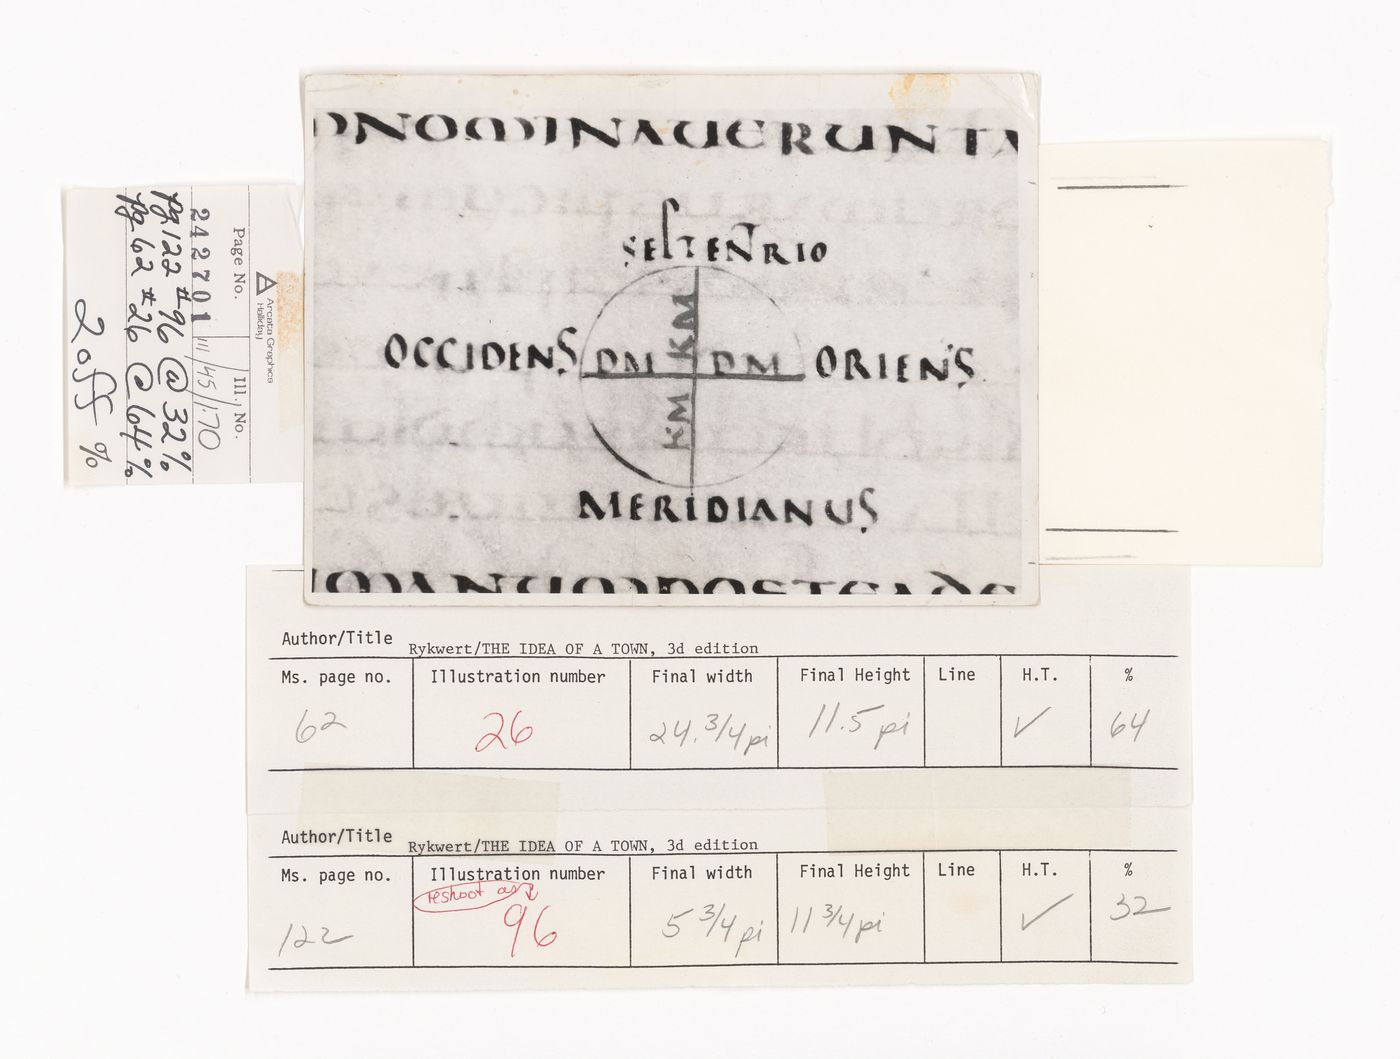 ONOMINAUERUNTA
SEPTENTRIO
OCCIDENS DM KM DM ORIENS
KM
MERIDIANUS
MANUMPOSTEADE
Arcata Graphics
Halliday
Page No. Ill. No.
242701 III/45/1.70
pg 122 #96 @ 32%
pg 62 #26 @ 64%
2 off %
Author/Title Rykwert/THE IDEA OF A TOWN, 3d edition
Ms. page no. Illustration number Final width Final Height Line H.T. %
62 26 24.3/4 pi 11.5 pi ✓ 64
Author/Title Rykwert/THE IDEA OF A TOWN, 3d edition
Ms. page no. Illustration number Final width Final Height Line H.T. %
reshoot as
122 96 5 3/4 pi 11 3/4 pi ✓ 32